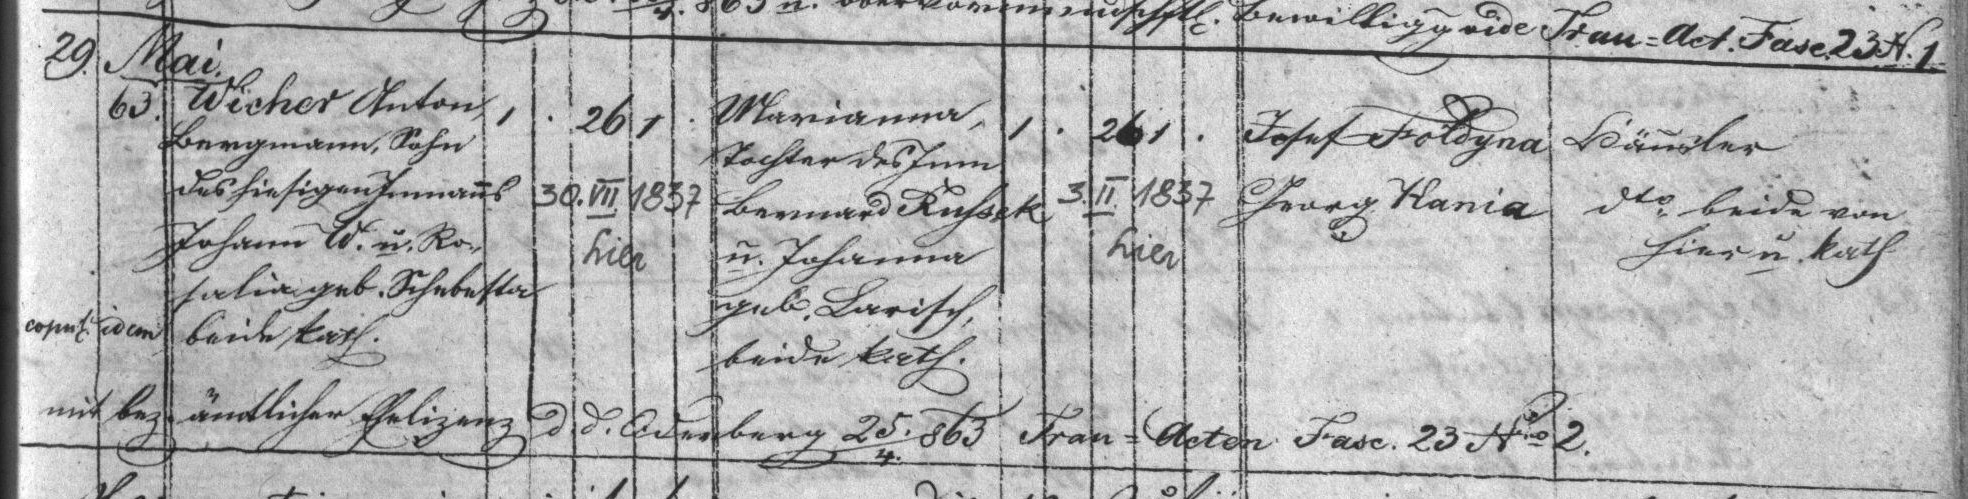 863 u. obervormundschftl. Bewilligg vide Trau=Act. Fasc. 23 N. 1
29. Mai
63. Wicher Anton, 1 . 26 1 . Marianna, 1 . 26 1 . Josef Földyna Häusler
Bergmann, Sohn Tochter des Inm
des hiesigen Inmanns 30. VII 1837 Bernard Russek 3. II 1837 Georg Kania dto beide von
Johann W. u. Ro- hier u. Johanna hier hier u. kath
salia geb. Schebesta geb. Larisch,
copul. idem beide kath. beide kath.
mit bez. ämtlicher Ehelizenz d. d. Oderberg 25./4. 863 Trau=Acten Fasc. 23 Nro 2.